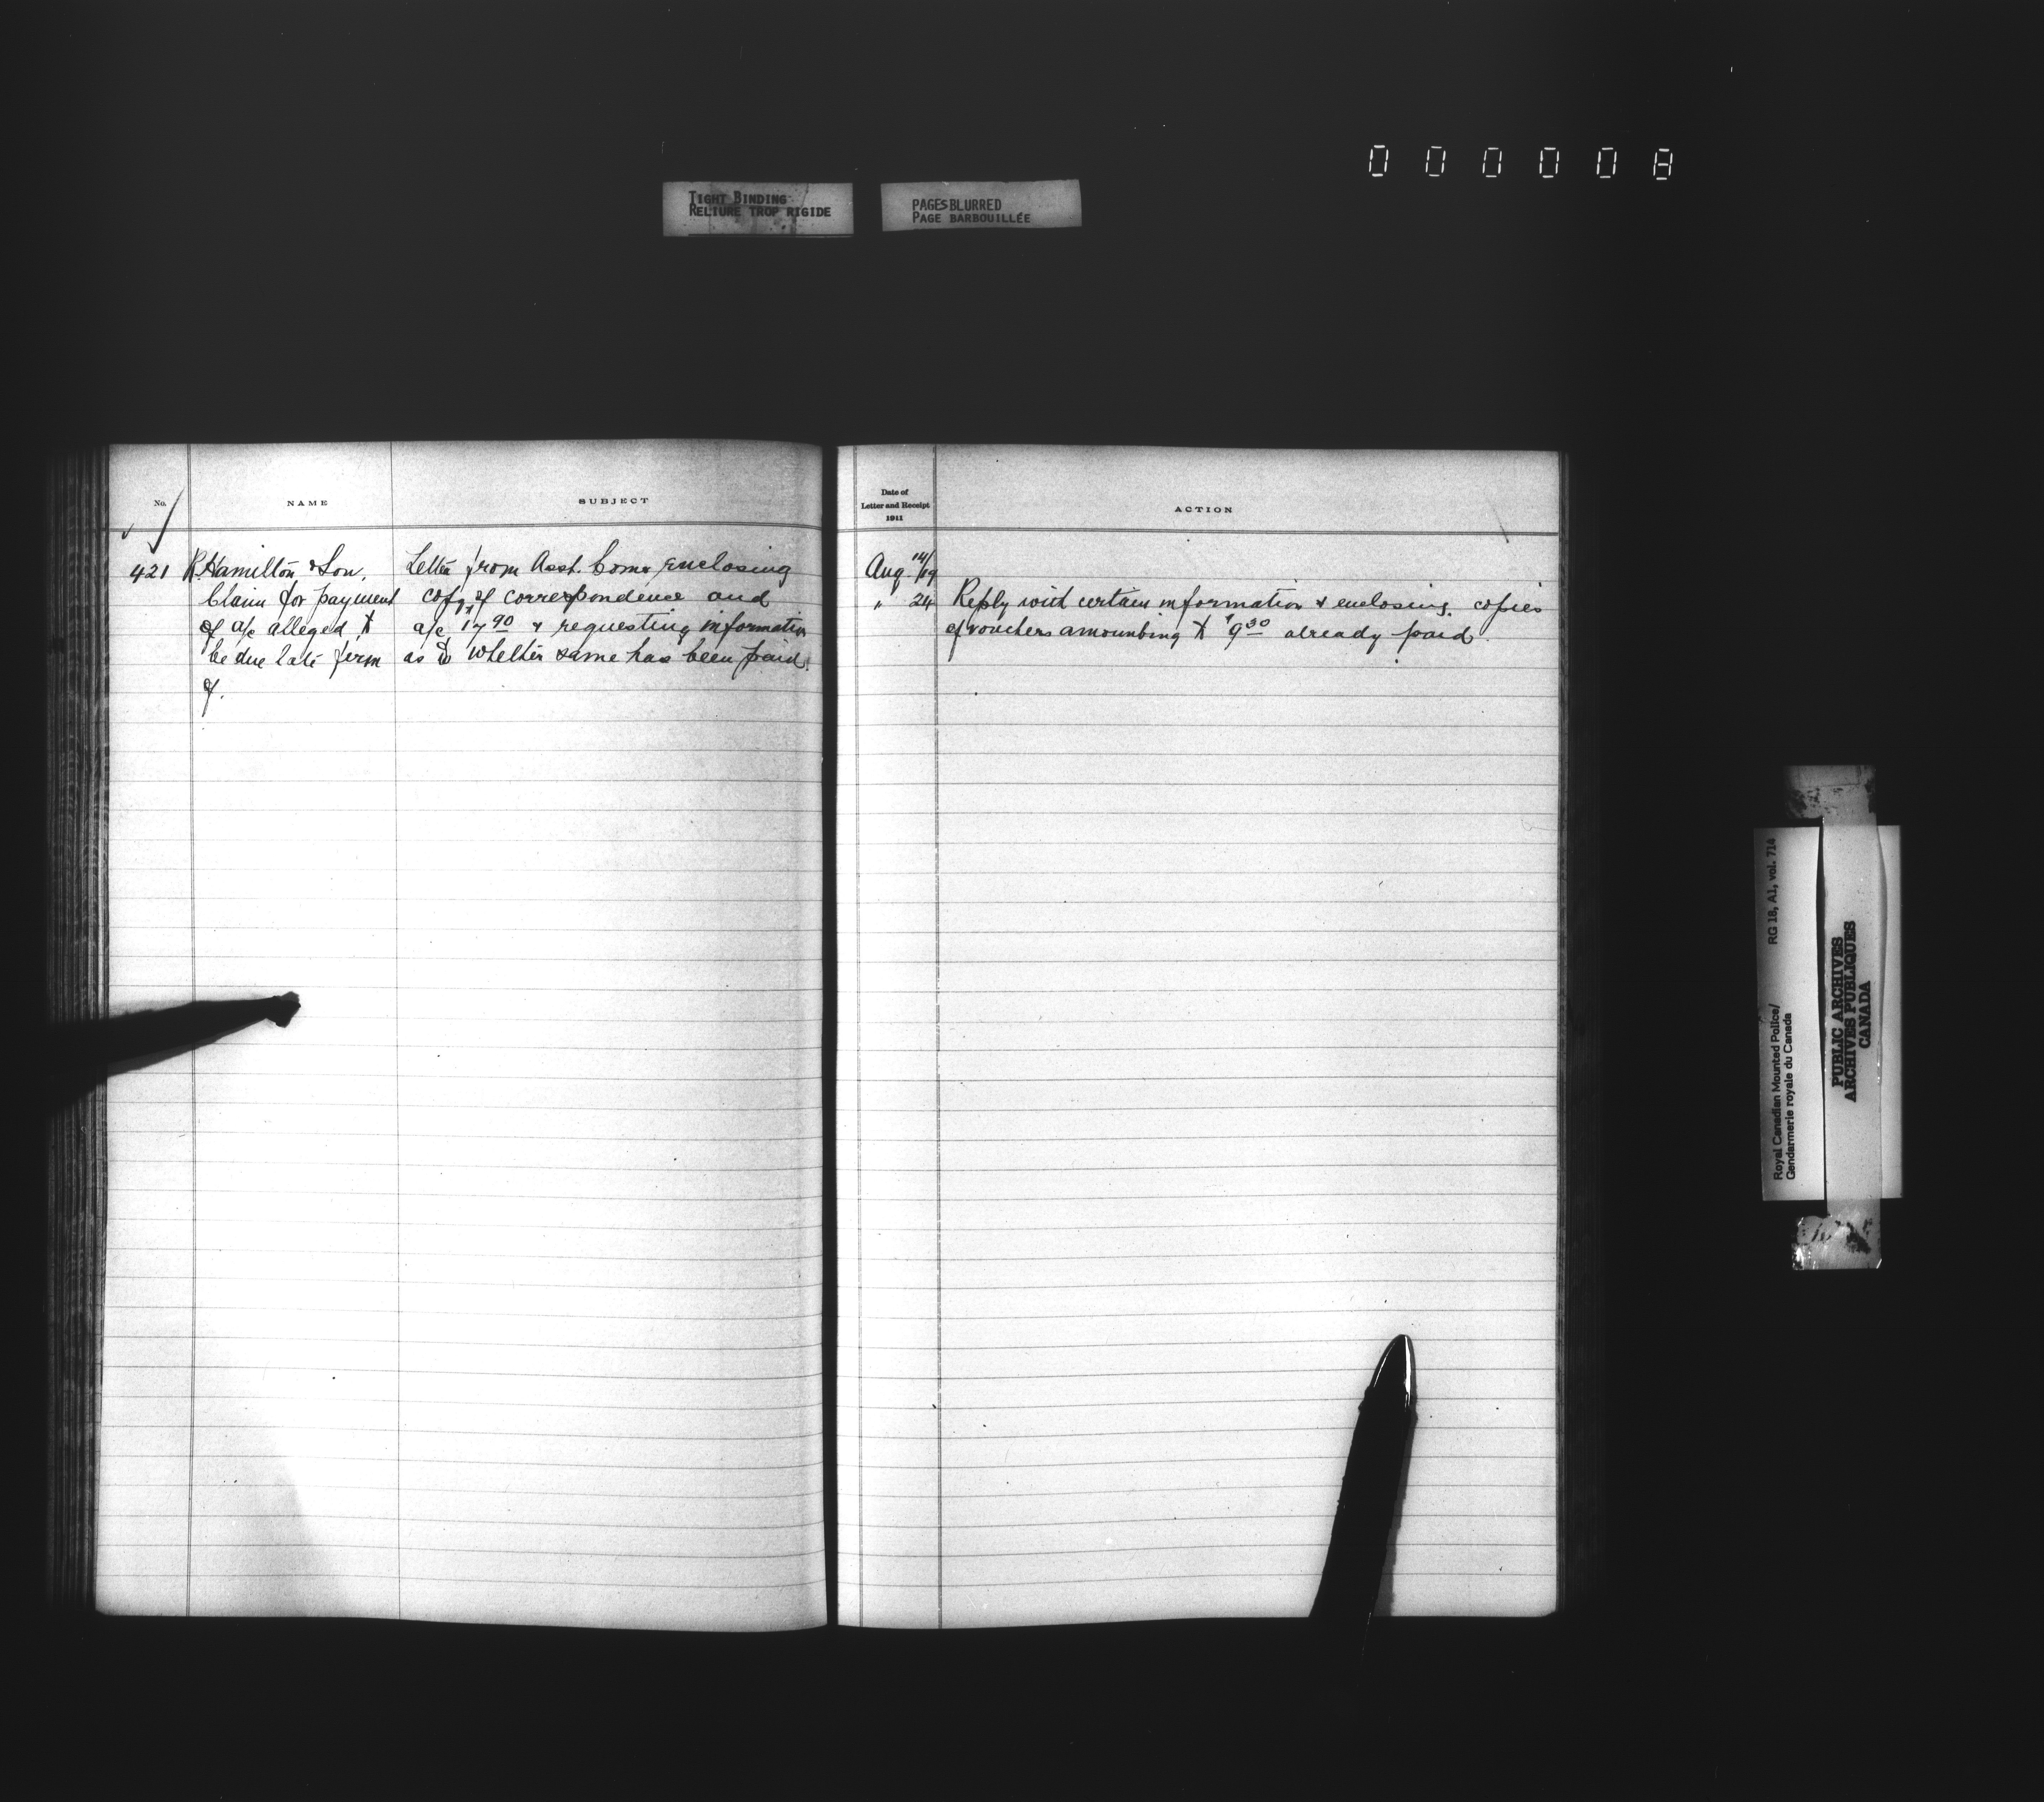 000008
TIGHT BINDING
RELIURE TROP RIGIDE
PAGES BLURRED
PAGE BARBOUILLÉE
No.
NAME
SUBJECT
421 R. Hamilton & Son.
Claim for payment
of a/c alleged to
be due late firm
of.
Letter from Asst. Comr enclosing
copy of correspondence and
a/c $17.90 & requesting information
as to whether same has been paid.
Date of
Letter and Receipt
1911
ACTION
Aug. 14/19
" 24 Reply with certain information & enclosing copies
of vouchers amounting to $9.30 already paid.
Royal Canadian Mounted Police/
Gendarmerie royale du Canada
RG 18, A1, vol. 714
PUBLIC ARCHIVES
ARCHIVES PUBLIQUES
CANADA